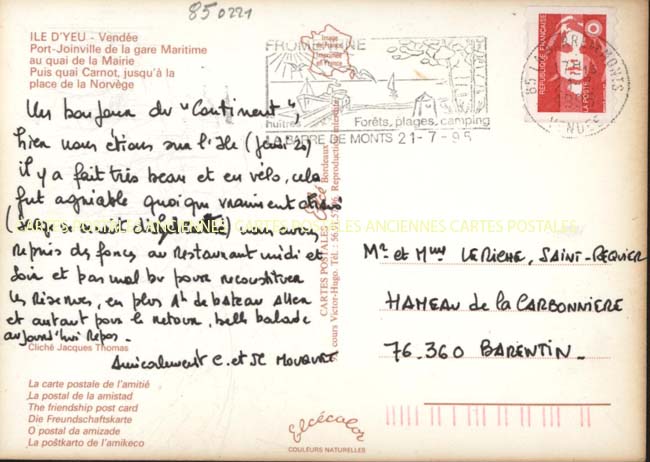 850221
ILE D'YEU - Vendée
Port-Joinville de la gare Maritime
au quai de la Mairie
Puis quai Carnot, jusqu'à la
place de la Norvège
Un bonjour du "Continent",
hier nous étions sur l'île (jeudi 20)
il y a fait très beau et en vélo, cela
fut agréable quoique vraiment
nous avons
repris des forces au restaurant midi et
soir et pas mal bu pour reconstituer
les réserves, en plus 1h de bateau aller
et autant pour le retour, belle balade
aujourd'hui repos.
Amicalement C. et JC
Cliché Jacques Thomas
La carte postale de l'amitié
La postal de la amistad
The friendship post card
Die Freundschaftskarte
O postal da amizade
La poŝtkarto de l'amikeco
CARTES POSTALES
cours Victor-Hugo. Tél. 56.91.57.06 Reproduction interdite
Bordeaux
Image
de France
Imprimée
en France
FROMENTINE
huîtres
Forêts, plages, camping
LA BARRE DE MONTS 21-7-95
REPUBLIQUE FRANÇAISE
LA POSTE
VENDEE
Mr et Mme LERICHE, SAINT-REQUIER
HAMEAU de la CARBONNIERE
76.360 BARENTIN.
elcécolor
COULEURS NATURELLES
CARTES POSTALES ANCIENNES CARTES POSTALES ANCIENNES CARTES POSTALES